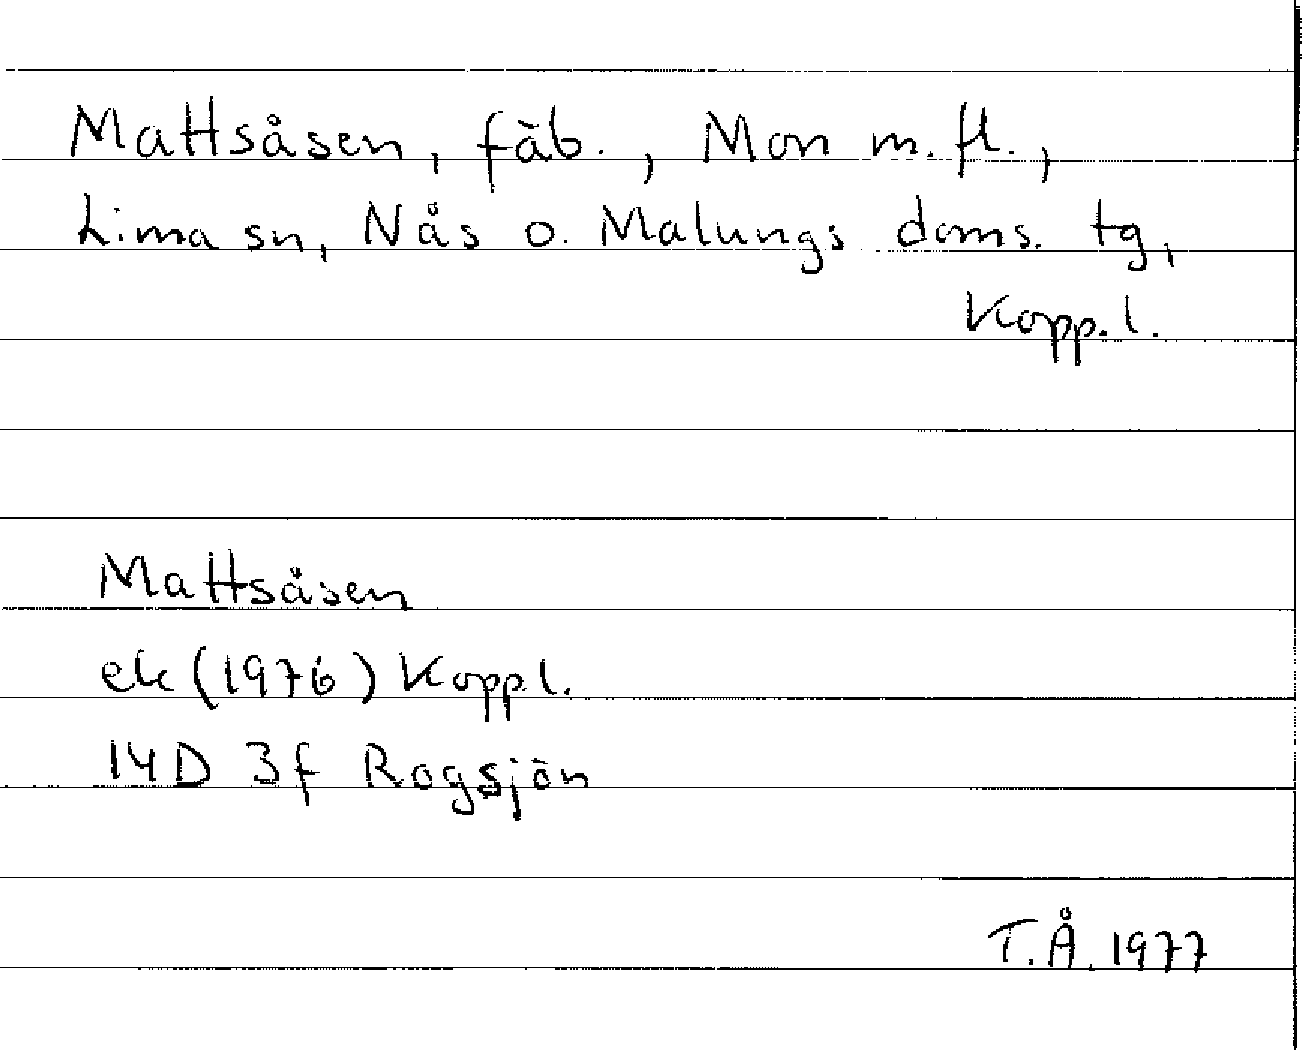 Mattsåsen, fäb., Mon m.fl.,
Lima sn, Nås o. Malungs doms. tg,
Kopp.l.
Mattsåsen
ek (1976) Koppl.
14D 3f Rogsjön
T.Å. 1977